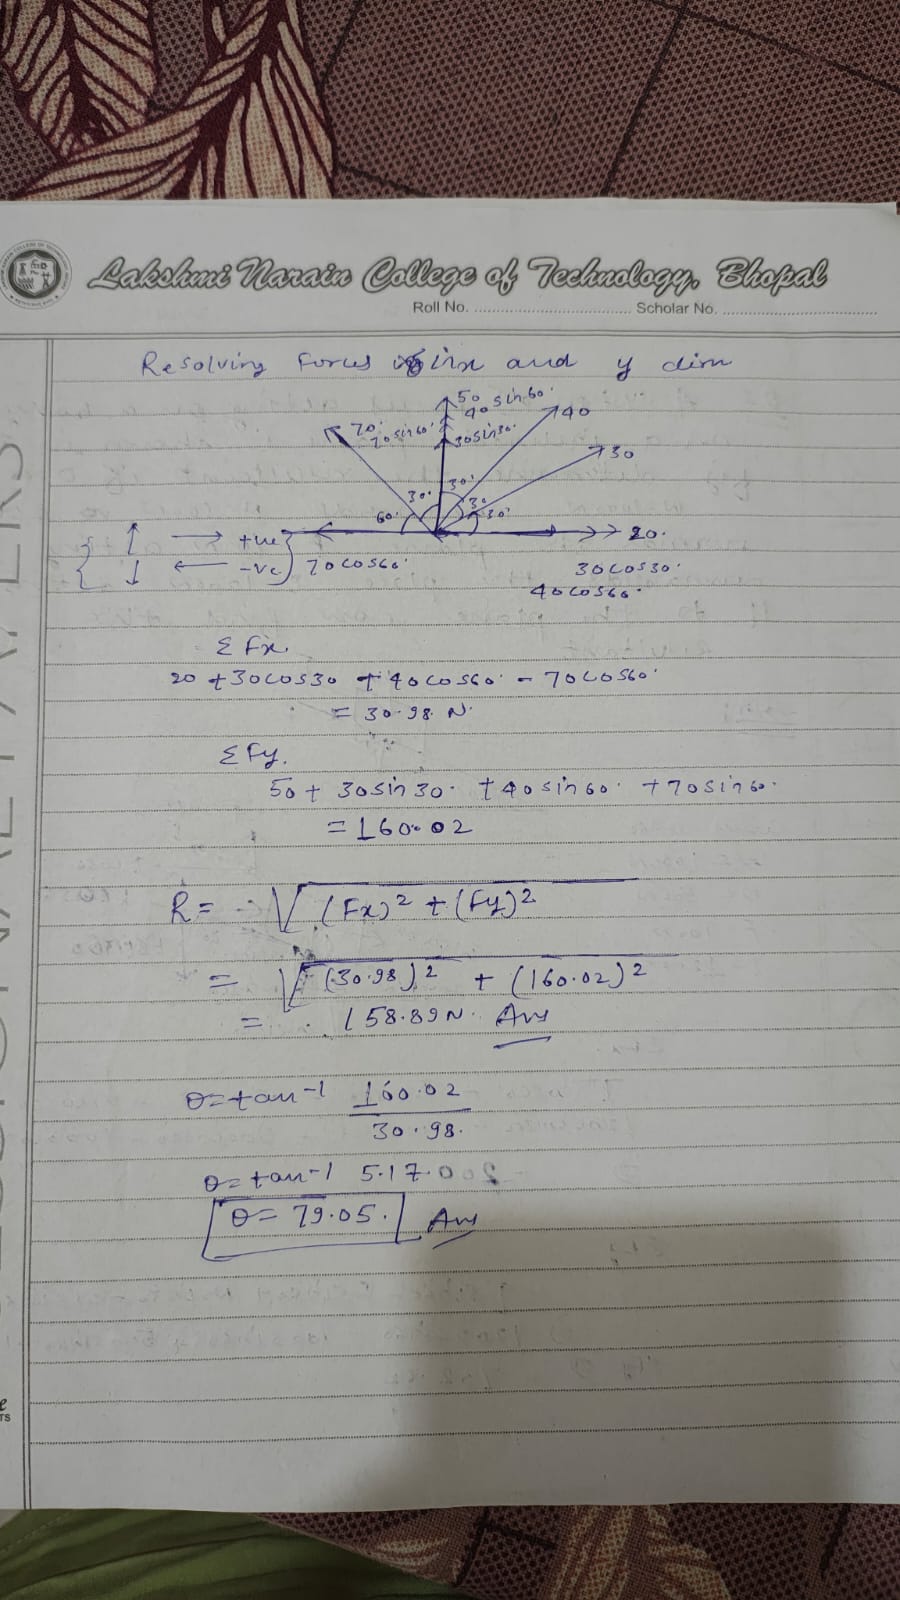 Lakshmi Narain College of Technology, Bhopal
Roll No. .................... Scholar No. ....................
Resolving forces in x and y dirn
50
40 sin 60°
40
70
70 sin 60°
30 sin 30°
30
30°
30°
30
60°
30°
20.
+ve
-ve
70 cos 60°
30 cos 30°
40 cos 60°
Σ Fx.
20 + 30 cos 30 + 40 cos 60° - 70 cos 60°
= 30.98 N.
Σ Fy.
50 + 30 sin 30° + 40 sin 60° + 70 sin 60°
= 160.02
R = √(Fx)² + (Fy)²
= √(30.98)² + (160.02)²
= 158.89 N. Ans
θ = tan⁻¹ 160.02
30.98.
θ = tan⁻¹ 5.17.00
θ = 79.05. Ans